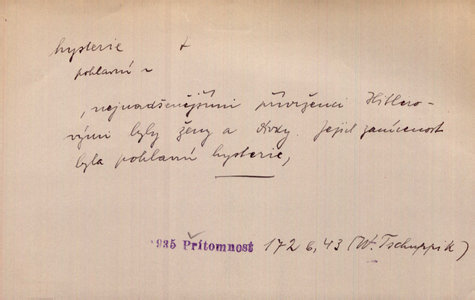 hysterie +
pohlavní ~
„nejnadšenějšími přívrženci Hitlero-
vými byly ženy a dívky. Jejich zanícenost
byla pohlavní hysterie„
935 Přítomnost 172 6,43 (W. Tschuppik)